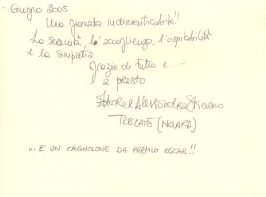 Giugno 2005
Una giornata indimenticabile!!
La serenità, l'accoglienza, l'ospitalità
e la simpatia
Grazie di tutto e...
a presto
Alessandra
TRECATE (NOVARA)
... E UN CAGNOLONE DA PREMIO OSCAR!!